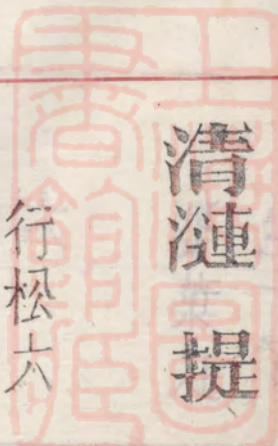 清漣 提
行松六